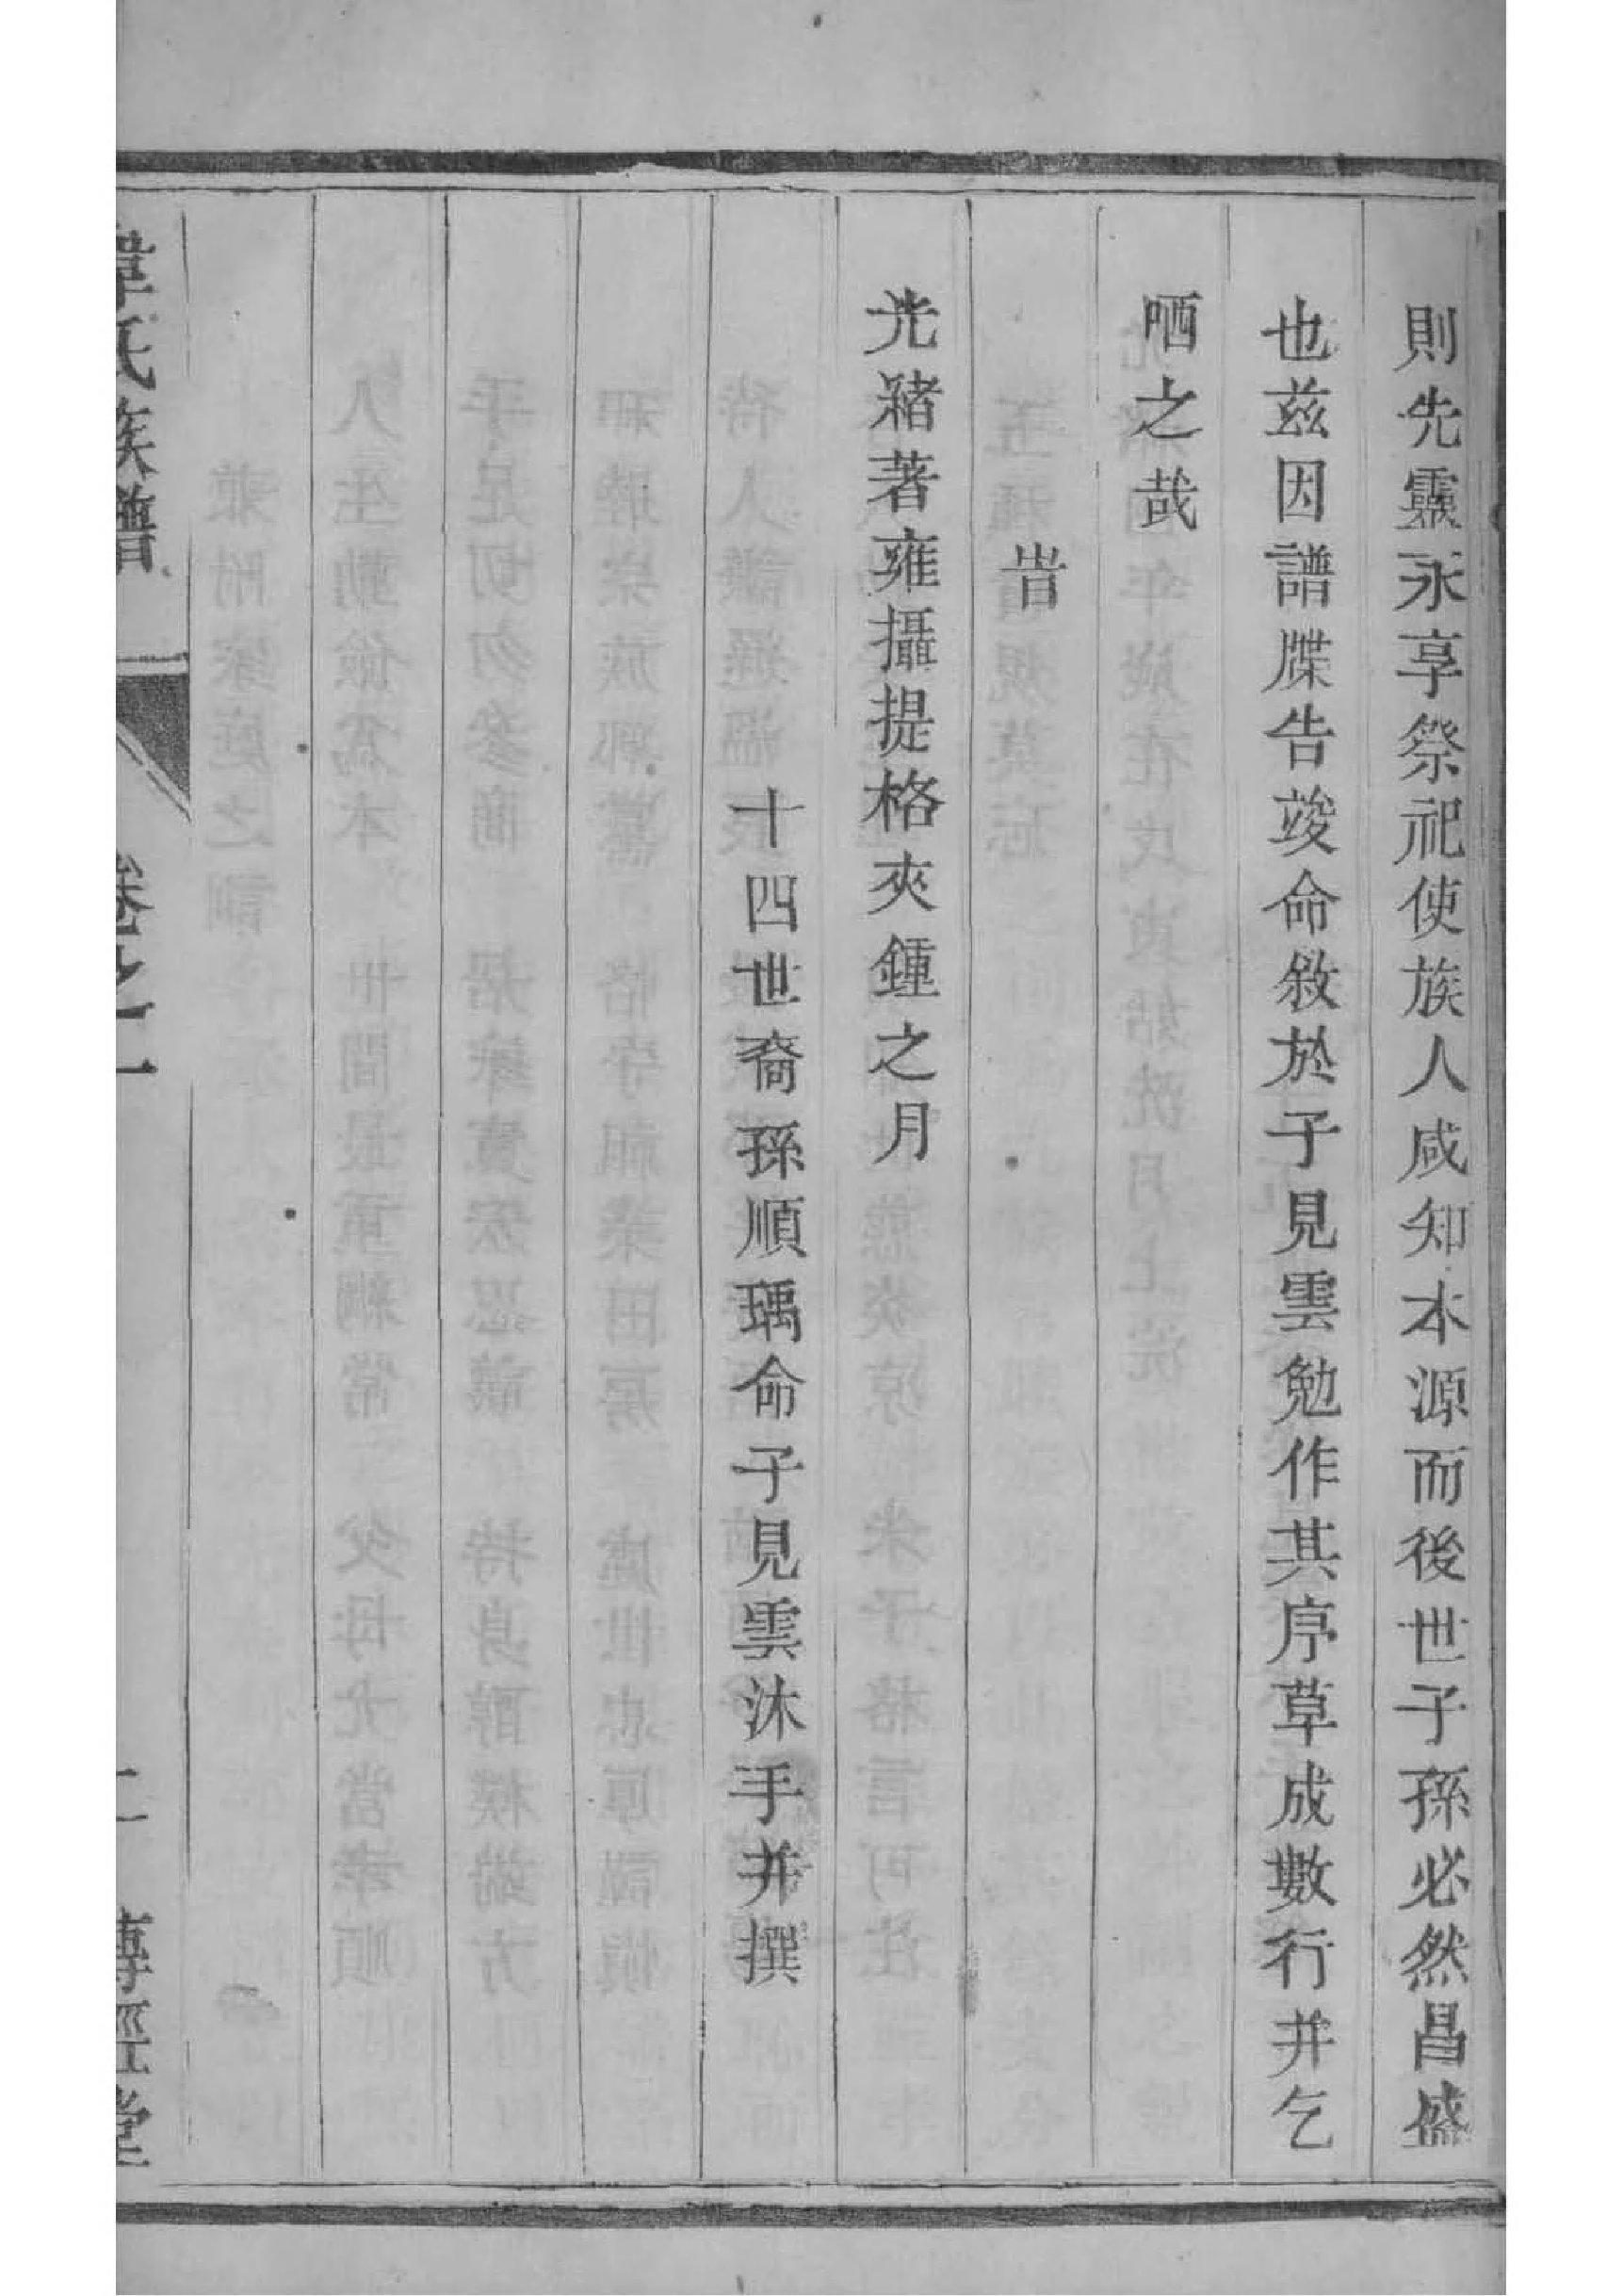 則先靈永享祭祀使族人咸知本源而後世子孫必然昌盛
也茲因譜牒告竣命敘於子見雲勉作其序草成數行并乞
哂之哉
旹
光緒著雍攝提格夾鍾之月
十四世裔孫順瑀命子見雲沐手并撰
韋氏族譜
卷之一
二
傳經堂